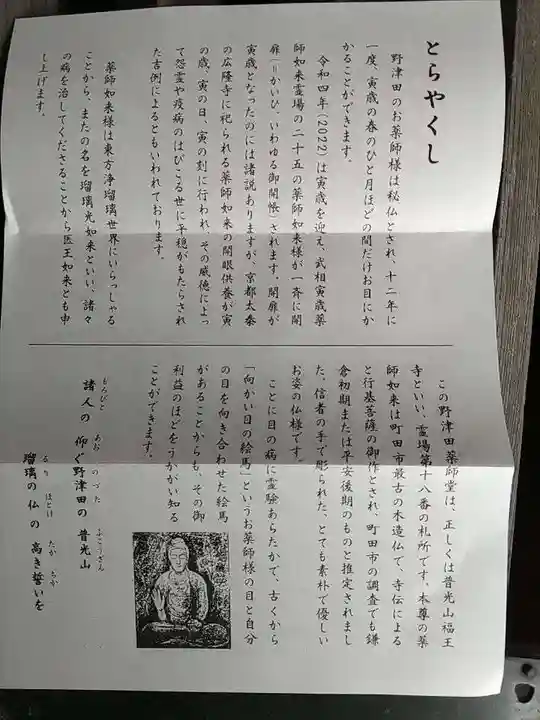 とらやくし
野津田のお薬師様は秘仏とされ、十二年に
一度、寅歳の春のひと月ほどの間だけお目にか
かることができます。
令和四年（2022）は寅歳を迎え、武相寅歳薬
師如来霊場の二十五の薬師如来様が一斉に開
扉（りかいひ、いわゆる御開帳）されます。開扉が
寅歳となったのには諸説ありますが、京都太秦
の広隆寺に祀られる薬師如来の開眼供養が寅
の歳、寅の日、寅の刻に行われ、その威徳によっ
て怨霊や疫病のはびこる世に平穏がもたらされ
た古例によるともいわれております。
薬師如来様は東方浄瑠璃世界にいらっしゃる
ことから、またの名を瑠璃光如来といい、諸々
の病を治してくださることから医王如来とも申
し上げます。
この野津田薬師堂は、正しくは普光山福王
寺といい、霊場第十八番の札所です。本尊の薬
師如来は町田市最古の木造仏で、寺伝による
と行基菩薩の御作とされ、町田市の調査でも鎌
倉初期または平安後期のものと推定されまし
た。信者の手で彫られた、とても素朴で優しい
お姿の仏様です。
ことに目の病に霊験あらたかで、古くから
「向かい目の絵馬」というお薬師様の目と自分
の目を向き合わせた絵馬
があることからも、その御
利益のほどをうかがい知る
ことができます。
諸人の 仰ぐ野津田の 普光山
もろびと あお のづた ふこうさん
瑠璃の仏の 高き誓いを
るり ほとけ たか ちか